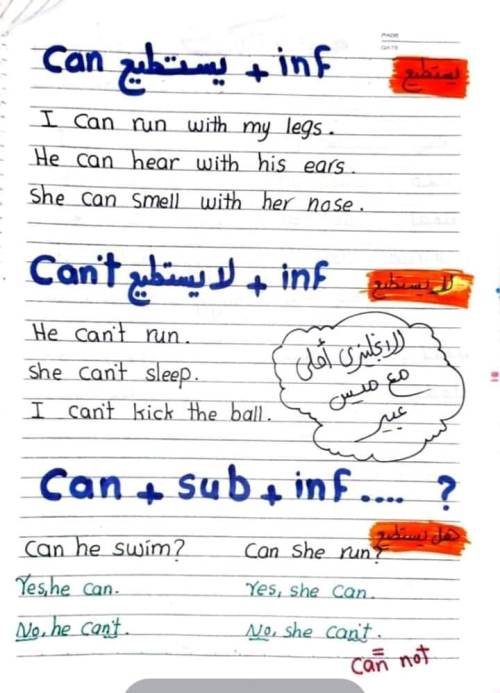 PAGE
DATE
Can يستطيع + inf
يستطيع
I can run with my legs.
He can hear with his ears.
She can smell with her nose.
Can't لا يستطيع + inf
لا يستطيع
He can't run.
She can't sleep.
I can't kick the ball.
الانجليزى أحلى
مع ميس
عبير
Can + sub + inf .... ?
هل يستطيع
Can he swim? Can she run?
Yes, he can. Yes, she can.
No, he can't. No, she can't.
=
can not